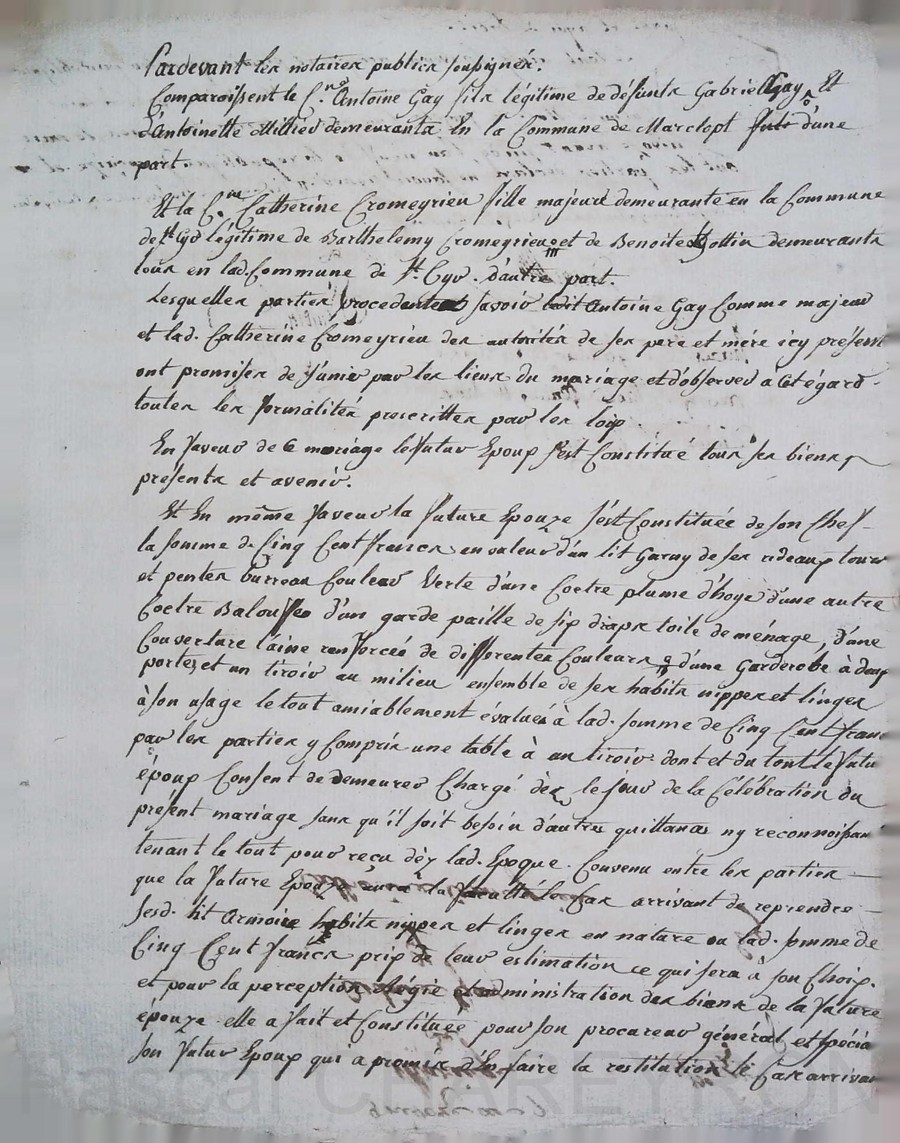 Pardevant les notaires publics soussignés.
Comparoissent le C.en Antoine Gay fils légitime de défunts Gabriel Gay Et
d'Antoinette Millier demeurants En la Commune de Marclopt d'une
part
Et la C.ne Catherine Cromeyrieu fille majeure demeurante en la Commune
de St Cyr légitime de Barthelemy Cromeyrieu et de Benoite demeurants
tous en lad. Commune de St. Cyr. d'autre part.
Lesquelles parties procedantes savoir ledit Antoine Gay Comme majeur
et lad. Catherine Cromeyrieu des autorités de ses pere et mére icy présents
ont promises de s'unir par les liens du mariage et d'observer à Cet égard
toutes les formalités prescrittes par les loix
En faveur de Ce mariage le futur Epoux s'est Constitué tous ses biens
présents et avenir.
Et En même faveur la future Epouze s'est Constituée de son Chef
la somme de Cinq Cent francs en valeur d'un lit Garny de ses rideaux tours
et pentes burreau Couleur Verte d'une Coetre plume d'hoye d'une autre
Coetre Balouffe d'un garde paille de six draps toile de ménage, d'une
Couverture laine renforcée de differentes Couleurs d'une Garderobe à deux
portes et un tiroir au milieu ensemble de ses habits nippes et linges
à son usage le tout amiablement évalués à lad. somme de Cinq Cent francs
par les parties y Compris une table à un tiroir dont et du tout le futur
époux Consent de demeurer Chargé dès le jour de la Célébration du
présent mariage sans qu'il soit besoin d'autres quittances ny reconnoissance
tenant le tout pour reçu dèz lad. Epoque. Convenu entre les parties
que la future Epouze aura la faculté le Cas arrivant de reprendre
sesd. lit Armoire habits nippes et linges en nature ou lad. somme de
Cinq Cent francs prix de leur estimation ce qui sera à son Choix.
et pour la perception régie et administration des biens de la future
épouze elle a fait et Constituée pour son procureur général et spécial
son futur Epoux qui a promis d'En faire la restitution le Cas arrivant
CHAREYRON